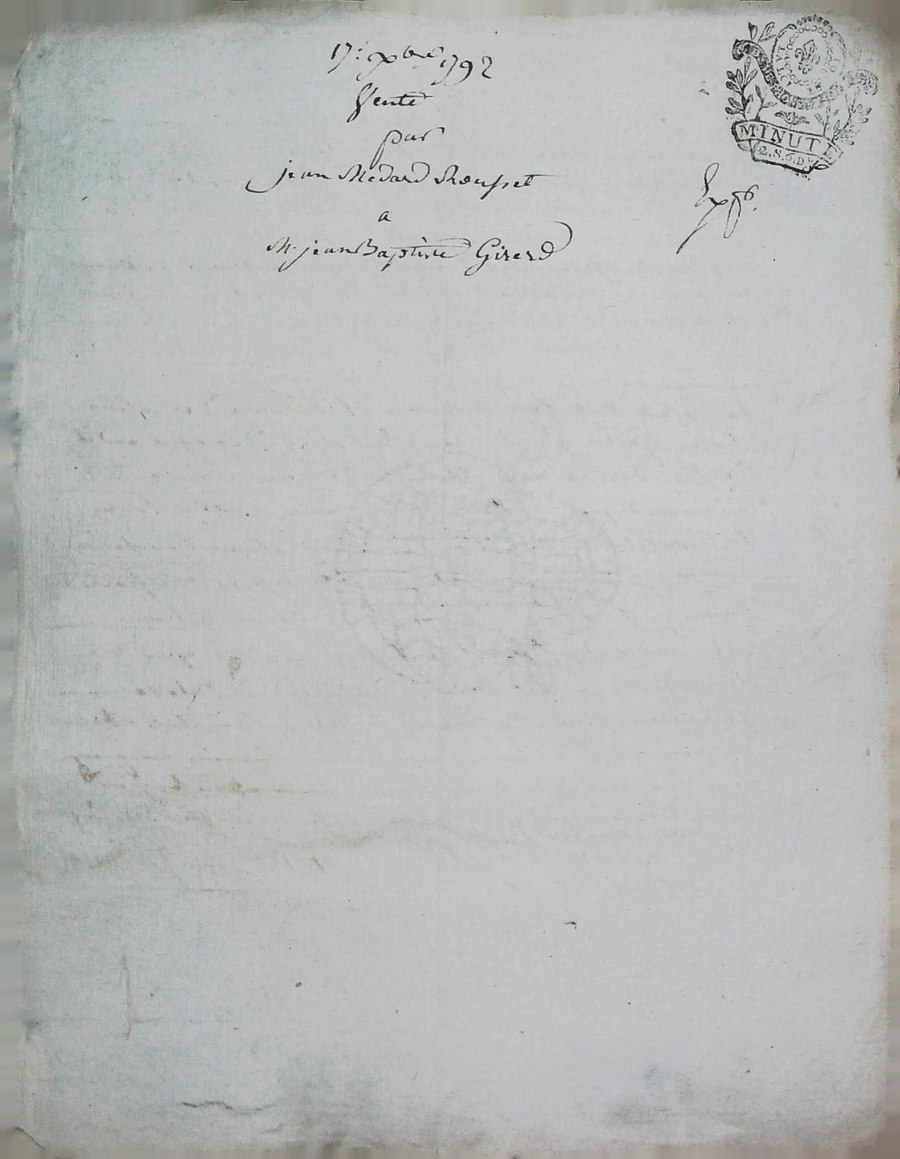 17: xbre 1792
Vente
par
jean Medard Rousset
a
Mr. jean Baptiste Girard
MINUT
2.S.6.D